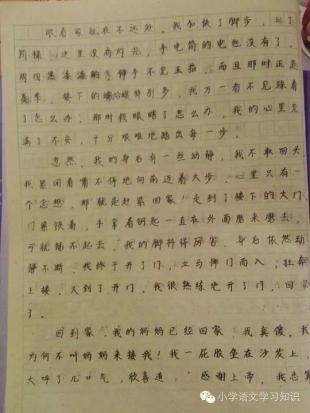 眼看家就在不远处，我加快了脚步，到了
阶梯，这里没有灯光，手电筒的电也没有了，
周围黑漆漆的，伸手不见五指，而且那时正是
夏季，楼下的蟑螂特别多，我万一看不见踩着
了怎么办，那时我眼瞎了怎么办，我的心里充
满了不安，十分艰难地踏出每一步。
忽然，我的身后有一丝动静，我不敢回头
我紧闭着嘴不停地向前迈着大步，心里只有一
个念想，那就是赶紧回家！走到了楼下的大门
门紧锁着，手拿着钥匙一直在外面磨来磨去，
可就插不起去，我的脚抖得厉害，身后依然动
静不断，我终于开了门，立马伸门而入，狂奔
上楼，又到了开门，我很熟练地开了门，回家
了。
回到家，我的妈妈已经回家，我真傻，我
为何不叫妈妈来接我！我一屁股坐在沙发上，
大呼了几口气，欣喜道：“感谢上帝，我总算
小学语文学习知识